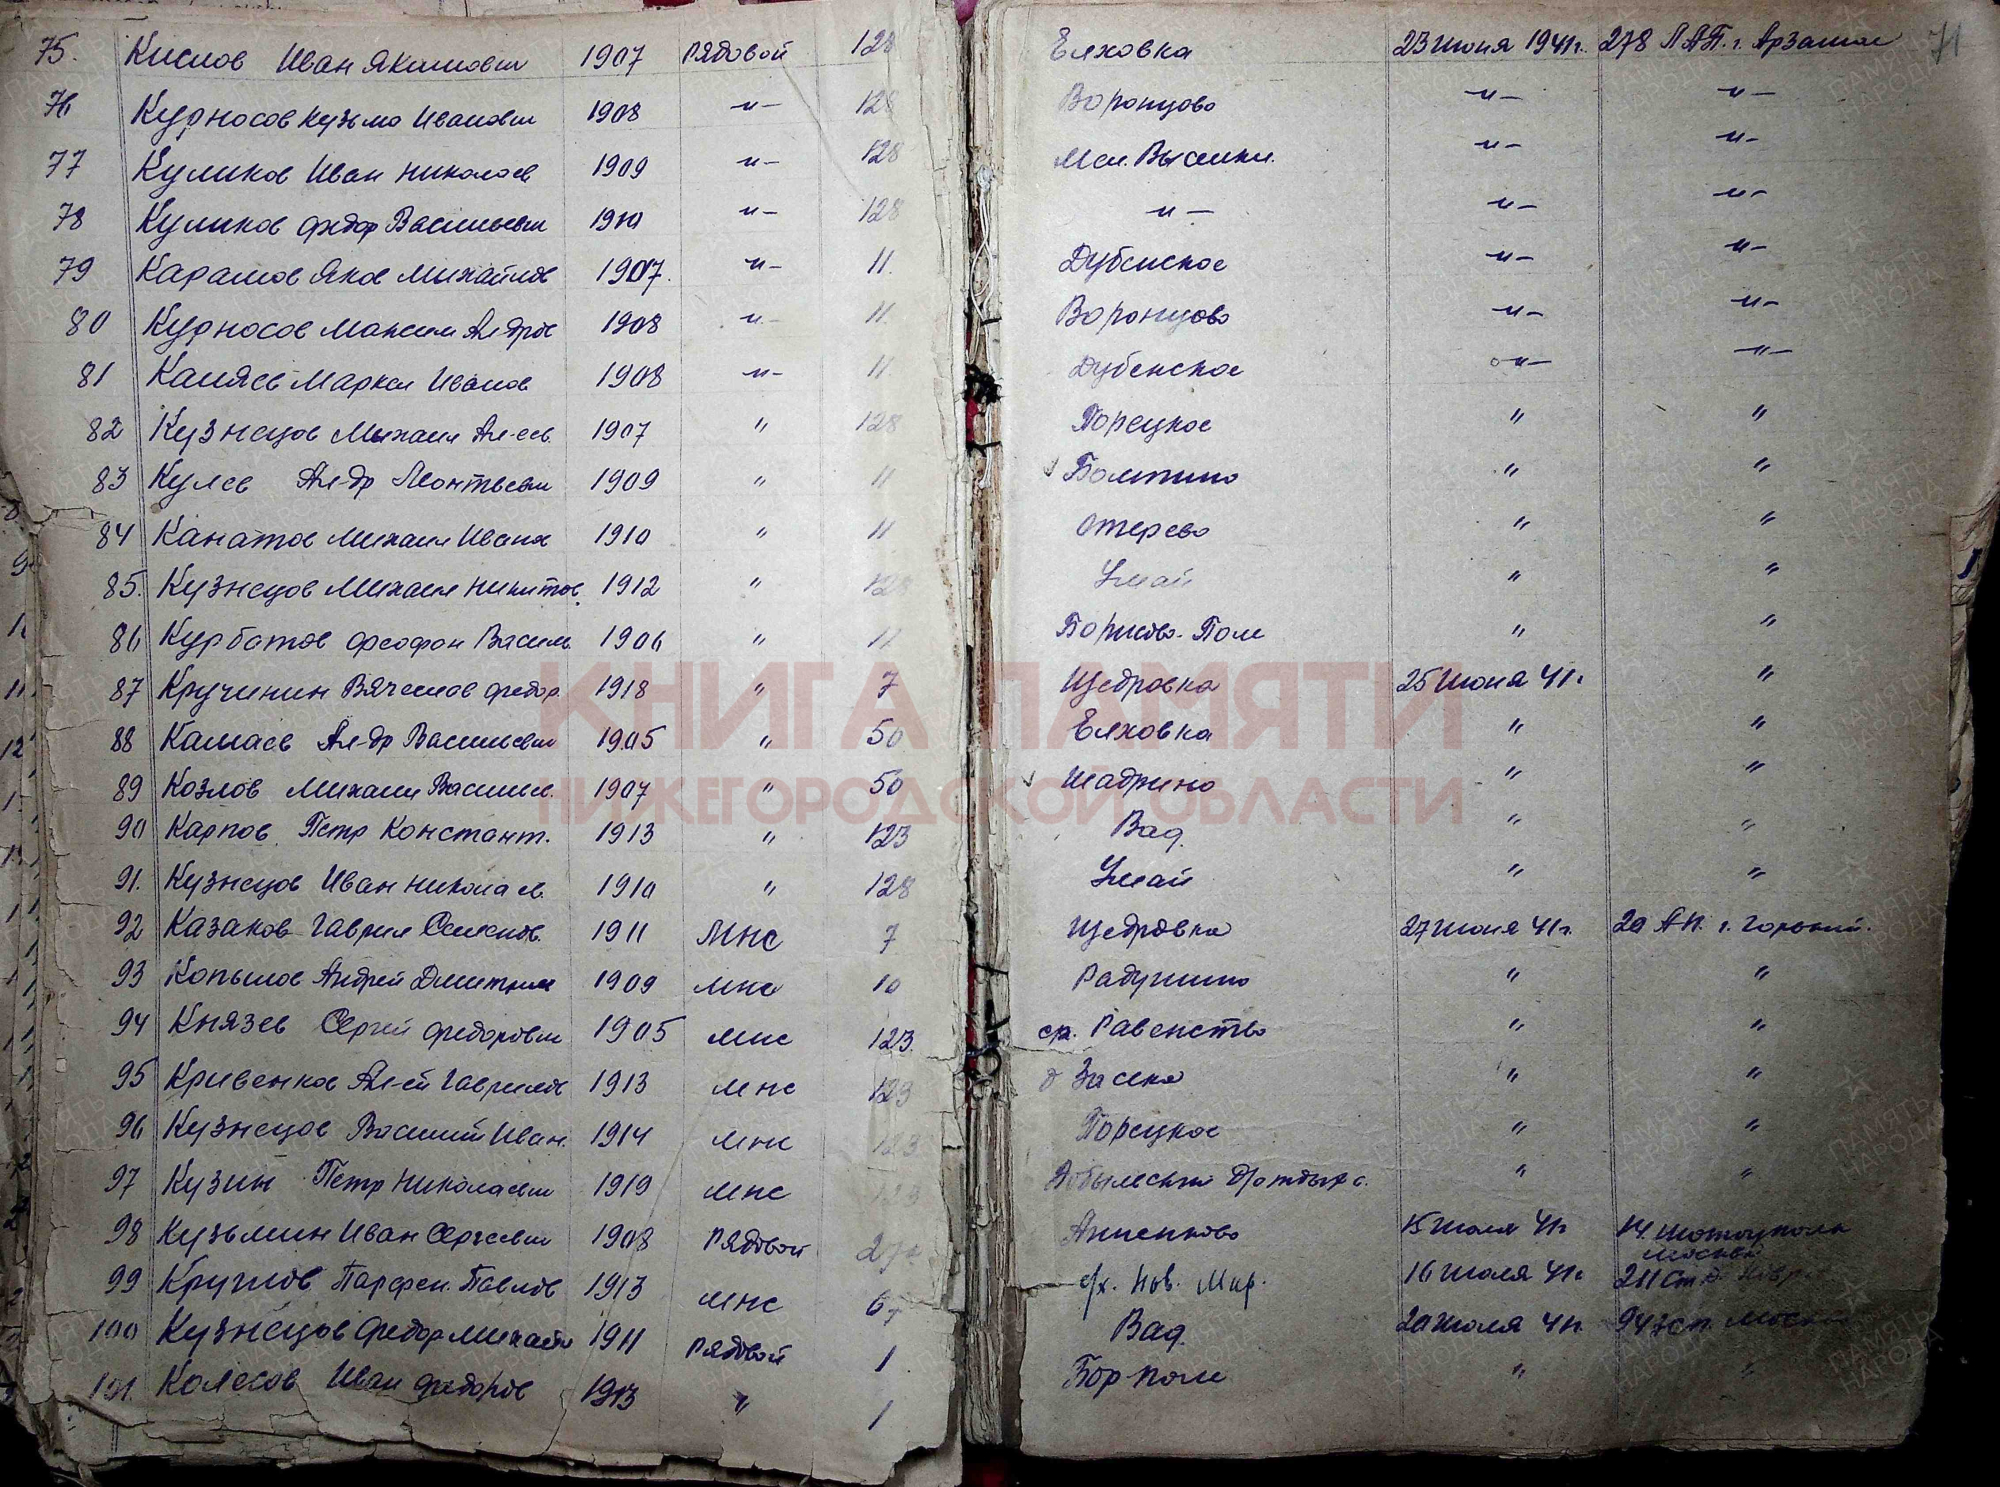 71
75. Кислов Иван Якимович 1907 рядовой 128 Елховка 23 июня 1941г. 278 ЛАП. г. Арзамас
76 Курносов Кузьма Иванович 1908 -"- 128 Воронцово -"- -"-
77 Куликов Иван Николаев 1909 -"- 128 -"- -"-
78 Куликов Федор Васильевич 1910 -"- 128 -"- -"- -"-
79 Карамов Яков Михайлов 1907. -"- 11. Дубенское -"- -"-
80 Курносов Максим Ал-дров 1908 -"- 11. Воронцово -"- -"-
81 Маркел Иванов 1908 -"- 11 Дубенское -"- -"-
82 Кузнецов Михаил Ал-еев. 1907 " 128 Порецкое " "
83 Кулев Ал-др Леонтьевич 1909 " 11 Болтино " "
84 Канатов Михаил Иванов 1910 " 11 Отерево " "
85. Кузнецов Михаил Никитов. 1912 " 128 Умай " "
86 Курбатов Феофан Василь. 1906 " 11 Борисово-Поле " "
87 Кручинин Вячеслав Федор. 1918 " 7 Щедровка 25 июня 41г. "
88 Камаев Ал-др Васильевич 1905 " 50 Елховка " "
89 Козлов Михаил Васильев. 1907 " 50 Шадрино " "
90 Карпов Петр Констант. 1913 " 123 Вад. " "
91. Кузнецов Иван Николаев. 1910 " 128 Умай " "
92 Казаков Гаврил Семенов. 1911 МНС 7 Щедровка 27 июня 41г. 20 АП. г. Горький.
93 Копылов Андрей Дмитриев 1909 мнс 10 Радушино " "
94 Князев Сергей Федорович 1905 мнс 123. Равенство " "
95 Кривенков Ал-ей Гаврилов 1913 мнс 123 д Засека " "
96 Кузнецов Василий Иван. 1914 мнс 123 Порецкое " "
97 Кузин Петр Николаевич 1919 мнс 123 " "
98 Кузьмин Иван Сергеевич 1908 рядовой Анненково 15 июля 41г Москва
99 Круглов Парфен. Павлов 1913 мнс 67 с/х. Нов. Мир. 16 июля 41г
100 Кузнецов Федор Михайлов 1911 рядовой 1. Вад. 20 июля 41г.
101. Колесов Иван Федоров 1913 " 1 Бор-поле " "
КНИГА ПАМЯТИ
НИЖЕГОРОДСКОЙ ОБЛАСТИ
ПАМЯТЬ НАРОДА